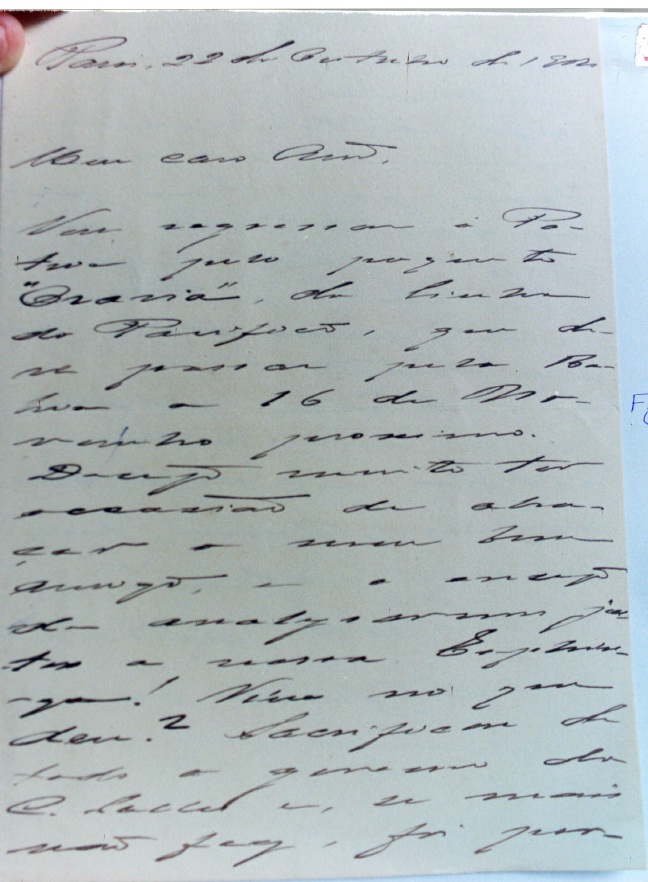 Paris, 22 de Outubro de 190
Meu caro
Vou regressar á Pa-
tria pelo paquete
"Oravia", da linha
do Pacifico, que de-
ve passar pela Ba-
hia a 16 de No-
vembro proximo.
Desejo muito ter
occasião de abra-
çar o meu bom
amigo, e o ensejo
de analysarmos jun-
tos a nossa Esphin-
ge! Viu no que
deu? Sacrificou de
todo o governo do
C. e, se mais
não fez, foi por-